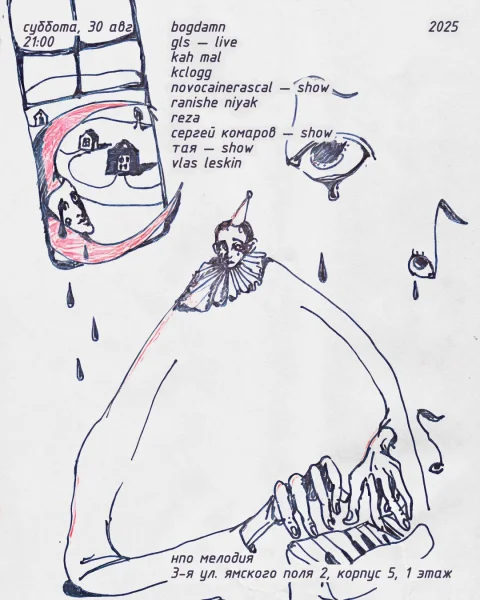 суббота, 30 авг
21:00
bogdamn
gls — live
kah mal
kclogg
novocainerascal — show
ranishe niyak
reza
сергей комаров — show
тая — show
vlas leskin
2025
нпо мелодия
3-я ул. ямского поля 2, корпус 5, 1 этаж